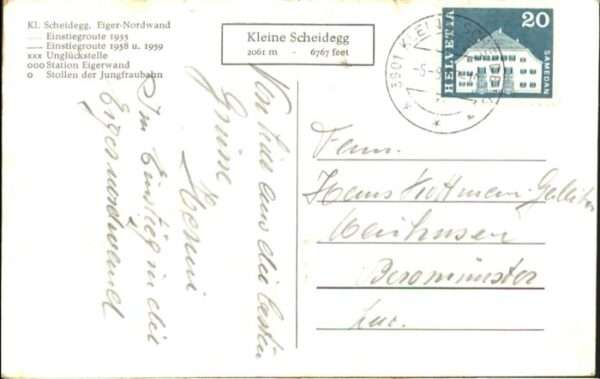 Kl. Scheidegg. Eiger-Nordwand
..... Einstiegroute 1935
——— Einstiegroute 1958 u. 1959
xxx Unglückstelle
ooo Station Eigerwand
o Stollen der Jungfraubahn
Kleine Scheidegg
2061 m - 6767 feet
HELVETIA
20
SAMEDAN
3801 KLEINE SCHEIDEGG
Von hier aus die besten
Grüsse
Im Einstieg in die
Eigernordwand
Fam.
Hans
Beromünster
Luz.